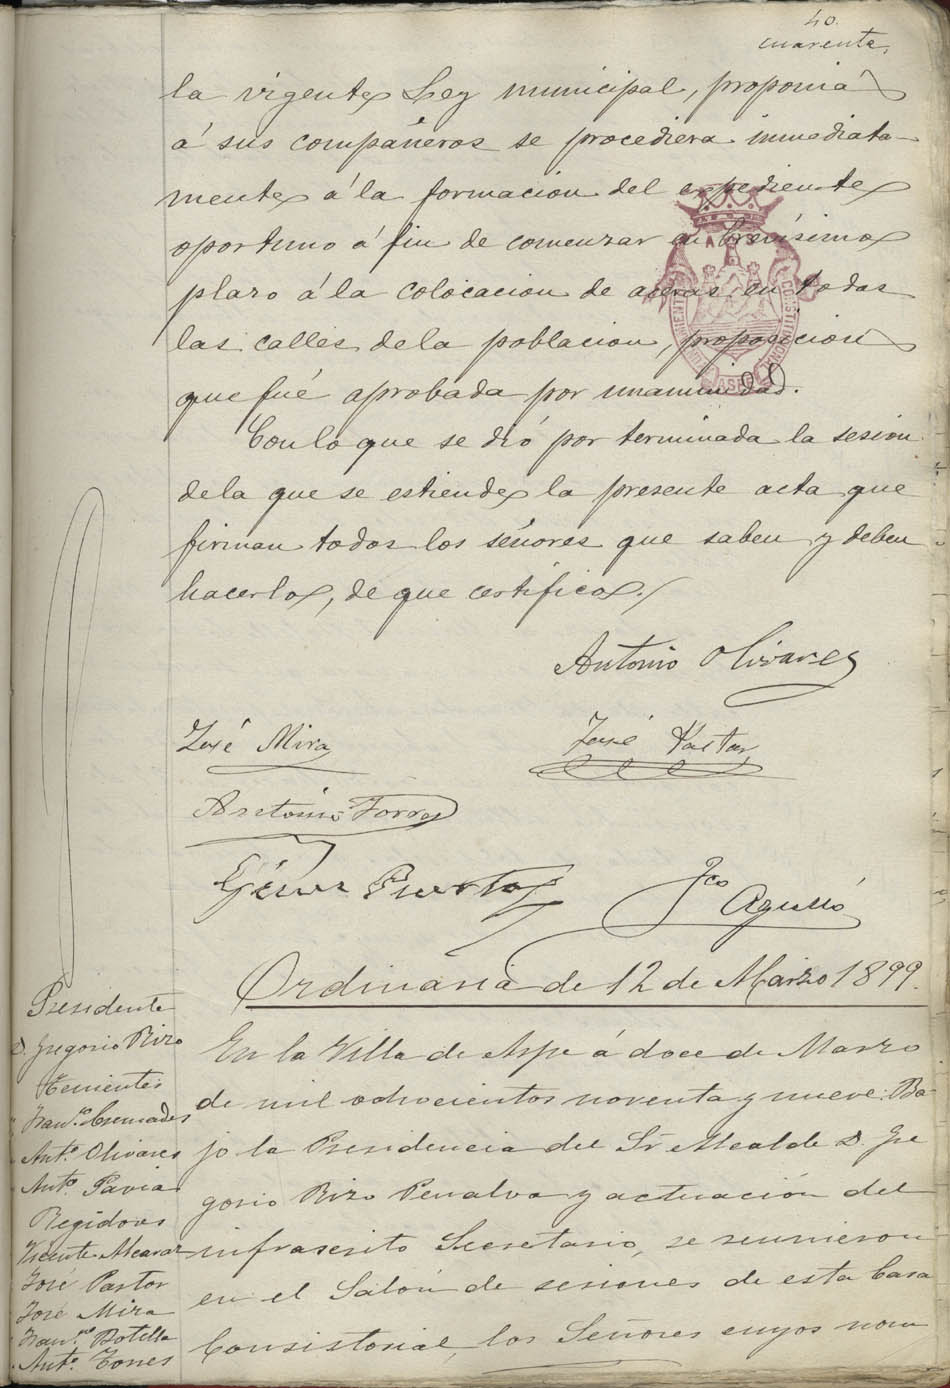 40.
cuarenta.
la vigente Ley municipal, proponia
á sus compañeros se procediera inmediata-
mente á la formacion del expediente
oportuno á fin de comenzar en brevísimo
plazo á la colocacion de aceras en todas
las calles de la poblacion, proposicion
que fué aprobada por unanimidad.
Con lo que se dió por terminada la sesion
de la que se estiende la presente acta que
firman todos los señores que saben y deben
hacerlo, de que certifico.
Antonio Olivares
José Mira
José Pastor
Antonio Torres
Puerto
Fco Agulló
Ordinaria de 12 de Marzo 1899.
Presidente
D. Gregorio Rizo
Tenientes
" Fran.co Cremades
" Ant.o Olivares
" Ant.o Pavia
Regidores
Vicente Alcaraz
José Pastor
José Mira
Fran.co Botella
Ant.o Torres
En la Villa de Aspe á doce de Marzo
de mil ochocientos noventa y nueve: Ba-
jo la Presidencia del Sr Alcalde D. Gre
gorio Rizo Penalva y actuación del
infrascrito Secretario, se reunieron
en el Salón de sesiones de esta Casa
Consistorial, los Señores cuyos nom